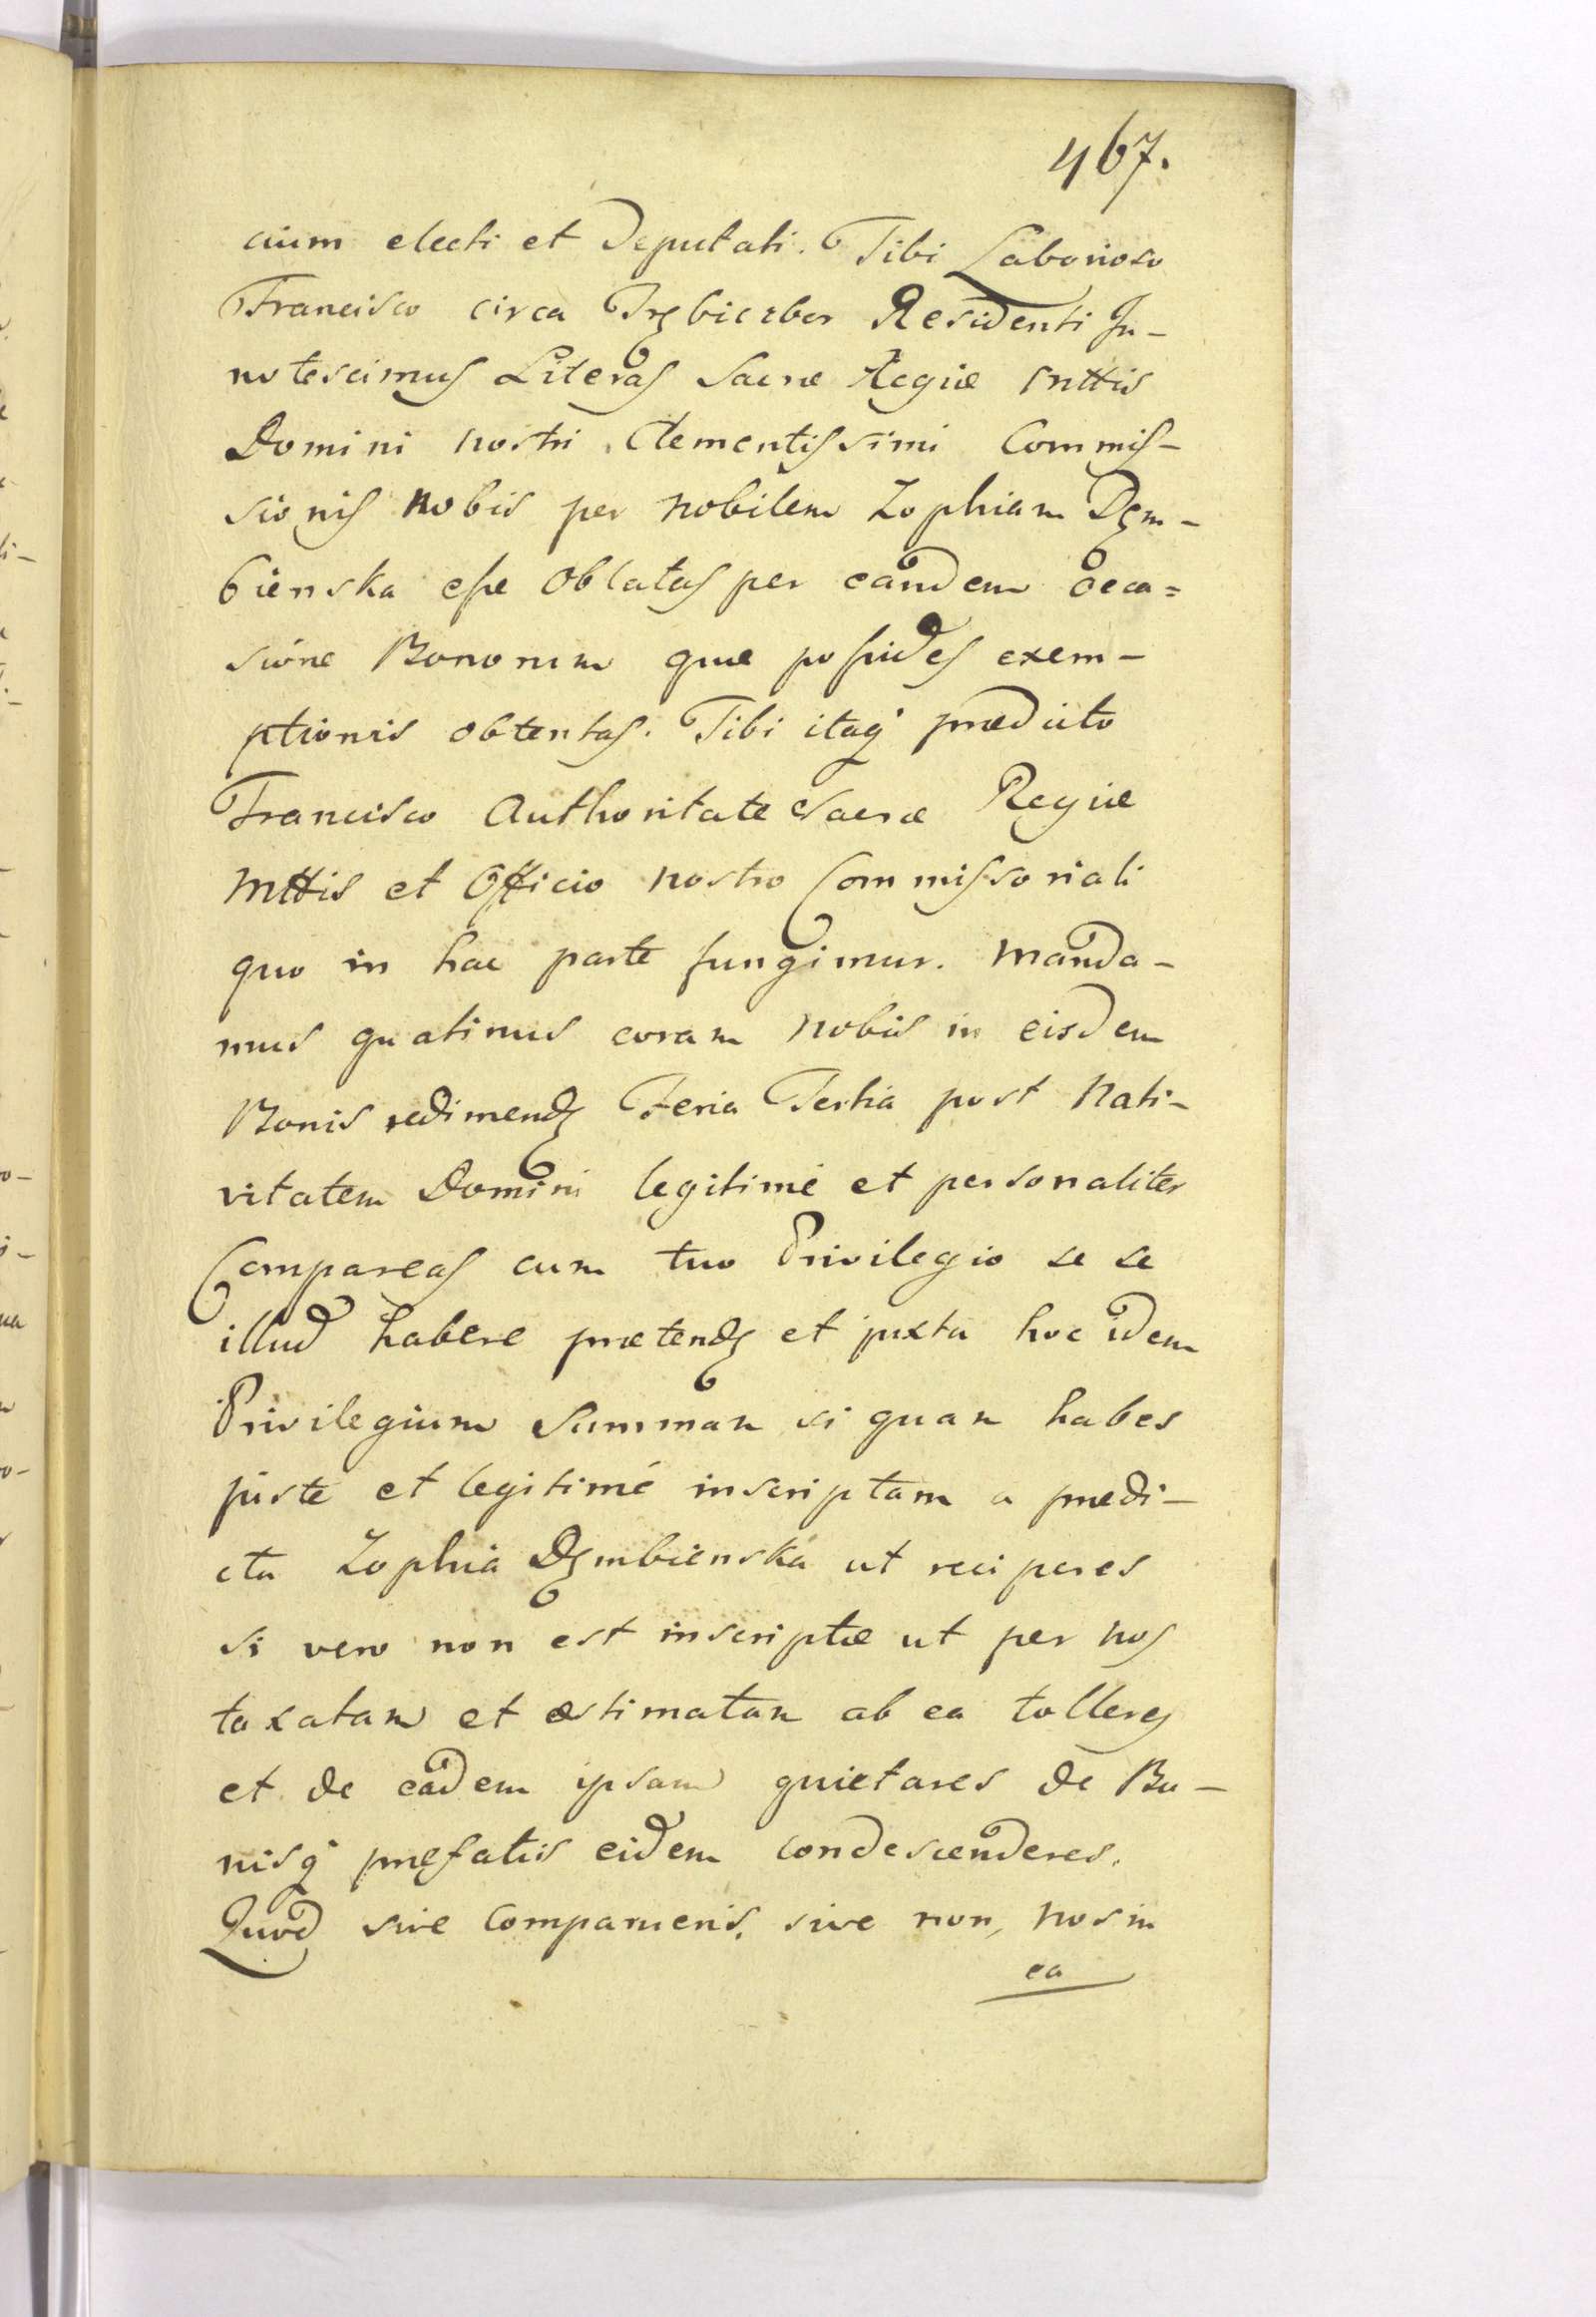 467.
cium electi et Deputati. Tibi Laborioso
Francisco circa Residenti In-
notescimus Literas Sacræ Regiæ Mttis
Domini nostri Clementissimi Commis-
sionis nobis per nobilem Zophiam Dęm-
bienska esse oblatas per eandem occa=
sione Bonorum quæ possides exem-
ptionis obtentas. Tibi itaq prædicto
Francisco Authoritate Sacræ Regiæ
Mttis et Officio nostro Commissoriali
quo in hac parte fungimur. Manda-
mus quatinus coram nobis in eisdem
Bonis redimendę Feria Tertia post Nati-
vitatem Domini legitimé et personaliter
Compareas cum tuo Privilegio se se
illud habere prætendę et juxta hoc idem
Privilegium Summam si quam habes
juste et legitimé inscriptam a prædi-
cta Zophia Dęmbienska ut reciperes
si vero non est inscriptæ ut per nos
taxatam et æstimatam ab ea tolleres
et de eadem ipsam quietares de Bo-
nisq præfatis eidem condescenderes.
Quod sive Comparueris, sive non, nos in
ea